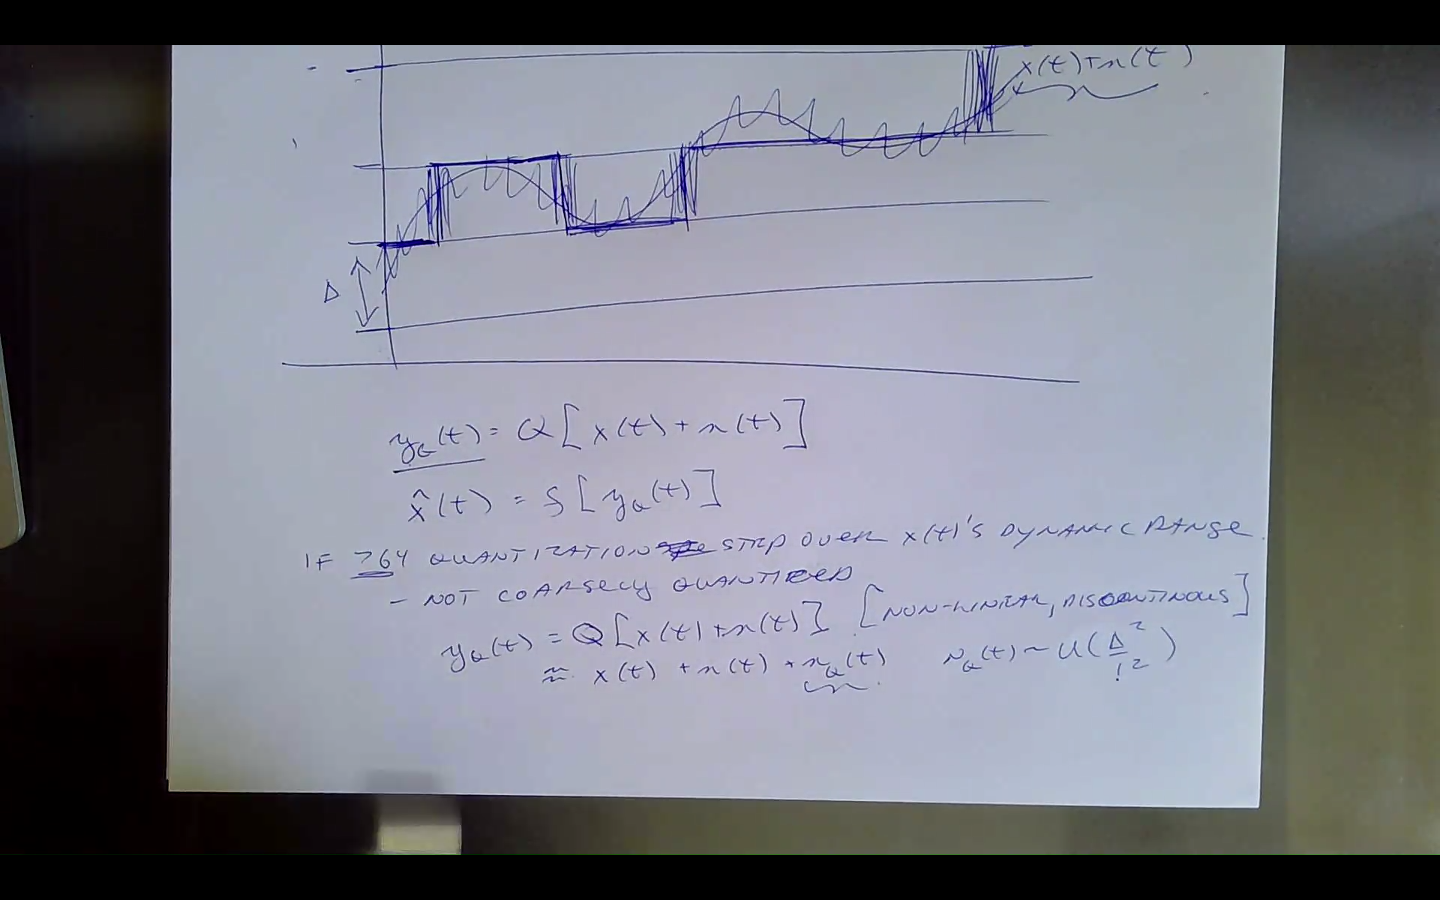 x(t)+n(t)
Δ
y_Q(t) = Q[x(t) + n(t)]
x̂(t) = S[y_Q(t)]
IF >64 QUANTIZATION STEP OVER x(t)'S DYNAMIC RANGE
- NOT COARSELY QUANTIZED
y_Q(t) = Q[x(t)+n(t)] [NON-LINEAR, DISCONTINOUS]
≈ x(t) + n(t) + n_Q(t) N_Q(t) ~ U(Δ²/12)